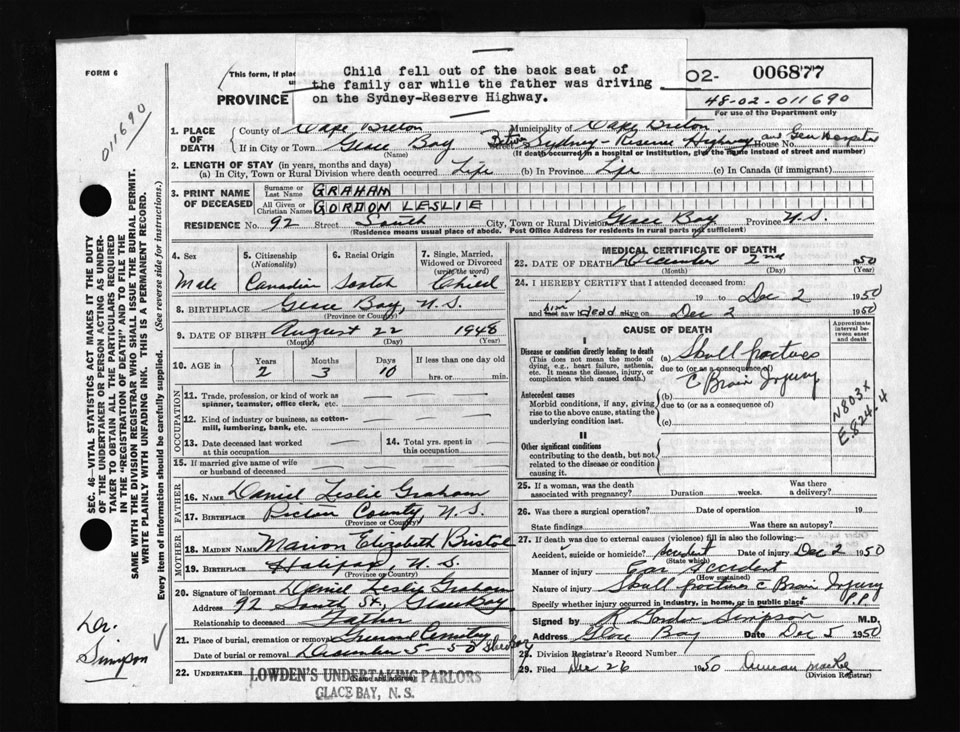 FORM 6
(This form, if plac
PROVINCE
Child fell out of the back seat of
the family car while the father was driving
on the Sydney-Reserve Highway.
02- 006877
48-02-011690
For use of the Department only
011690
SEC. 46—VITAL STATISTICS ACT MAKES IT THE DUTY
OF THE UNDERTAKER OR PERSON ACTING AS UNDER-
TAKER TO OBTAIN ALL THE PARTICULARS REQUIRED
IN THE "REGISTRATION OF DEATH" AND TO FILE THE
SAME WITH THE DIVISION REGISTRAR WHO SHALL ISSUE THE BURIAL PERMIT.
WRITE PLAINLY WITH UNFADING INK. THIS IS A PERMANENT RECORD.
Every item of information should be carefully supplied. (See reverse side for instructions.)
1. PLACE OF DEATH
County of Cape Breton Municipality of Cape Breton
If in City or Town Glace Bay Street Sydney-Reserve Highway and Gen Hospital House No.
(Name) (If death occurred in a hospital or institution, give the name instead of street and number)
2. LENGTH OF STAY (in years, months and days)
(a) In City, Town or Rural Division where death occurred Life (b) In Province Life (c) In Canada (if immigrant)
3. PRINT NAME OF DECEASED
Surname or Last Name GRAHAM
All Given or Christian Names GORDON LESLIE
RESIDENCE No. 92 Street South City, Town or Rural Division Glace Bay Province N.S.
(Residence means usual place of abode. Post Office Address for residents in rural parts not sufficient)
4. Sex Male
5. Citizenship (Nationality) Canadian
6. Racial Origin Scotch
7. Single, Married, Widowed or Divorced (write the word) Child
8. BIRTHPLACE Glace Bay, N.S.
9. DATE OF BIRTH August 22 1948
(Month) (Day) (Year)
10. AGE in Years 2 Months 3 Days 10 If less than one day old
hrs. or min.
OCCUPATION
11. Trade, profession, or kind of work as spinner, teamster, office clerk, etc. —
12. Kind of industry or business, as cotten-mill, lumbering, bank, etc. —
13. Date deceased last worked at this occupation —
14. Total yrs. spent in this occupation —
15. If married give name of wife or husband of deceased —
FATHER
16. NAME Daniel Leslie Graham
17. BIRTHPLACE Pictou County, N.S.
(Province or County)
MOTHER
18. MAIDEN NAME Marion Elizabeth Bristol
19. BIRTHPLACE Halifax, N.S.
(Province or Country)
20. Signature of informant Daniel Leslie Graham
Address 92 South St, Glace Bay
Relationship to deceased Father
21. Place of burial, cremation or removal Greenwood Cemetery
Date of burial or removal December 5-50
22. UNDERTAKER LOWDEN'S UNDERTAKING PARLORS
GLACE BAY, N.S.
Dr.
Simpson
MEDICAL CERTIFICATE OF DEATH
23. DATE OF DEATH December 2nd 1950
(Month) (Day) (Year)
24. I HEREBY CERTIFY that I attended deceased from:
19 to Dec 2 1950
and last saw him dead alive on Dec 2 1950
CAUSE OF DEATH
Approximate interval between onset and death
I
Disease or condition directly leading to death
(This does not mean the mode of dying, e.g., heart failure, asthenia, etc. It means the disease, injury, or complication which caused death.)
(a) Skull fractures
due to (or as a consequence of)
c Brain Injury
Antecedent causes
Morbid conditions, if any, giving rise to the above cause, stating the underlying condition last.
(b)
due to (or as a consequence of)
(c)
N803X
E824-4
II
Other significant conditions
contributing to the death, but not related to the disease or condition causing it.
25. If a woman, was the death associated with pregnancy? Duration weeks. Was there a delivery?
26. Was there a surgical operation? Date of operation 19
State findings Was there an autopsy?
27. If death was due to external causes (violence) fill in also the following:
Accident, suicide or homicide? Accident Date of injury Dec 2 1950
(State which)
Manner of injury Car Accident
(How sustained)
Nature of injury Skull fractures c Brain Injury
Specify whether injury occurred in industry, in home, or in public place P.P.
Signed by R Gordon Simpson M.D.
Address Glace Bay Date Dec 5 1950
28. Division Registrar's Record Number
29. Filed Dec 26 1950 Duncan MacKay
(Division Registrar)